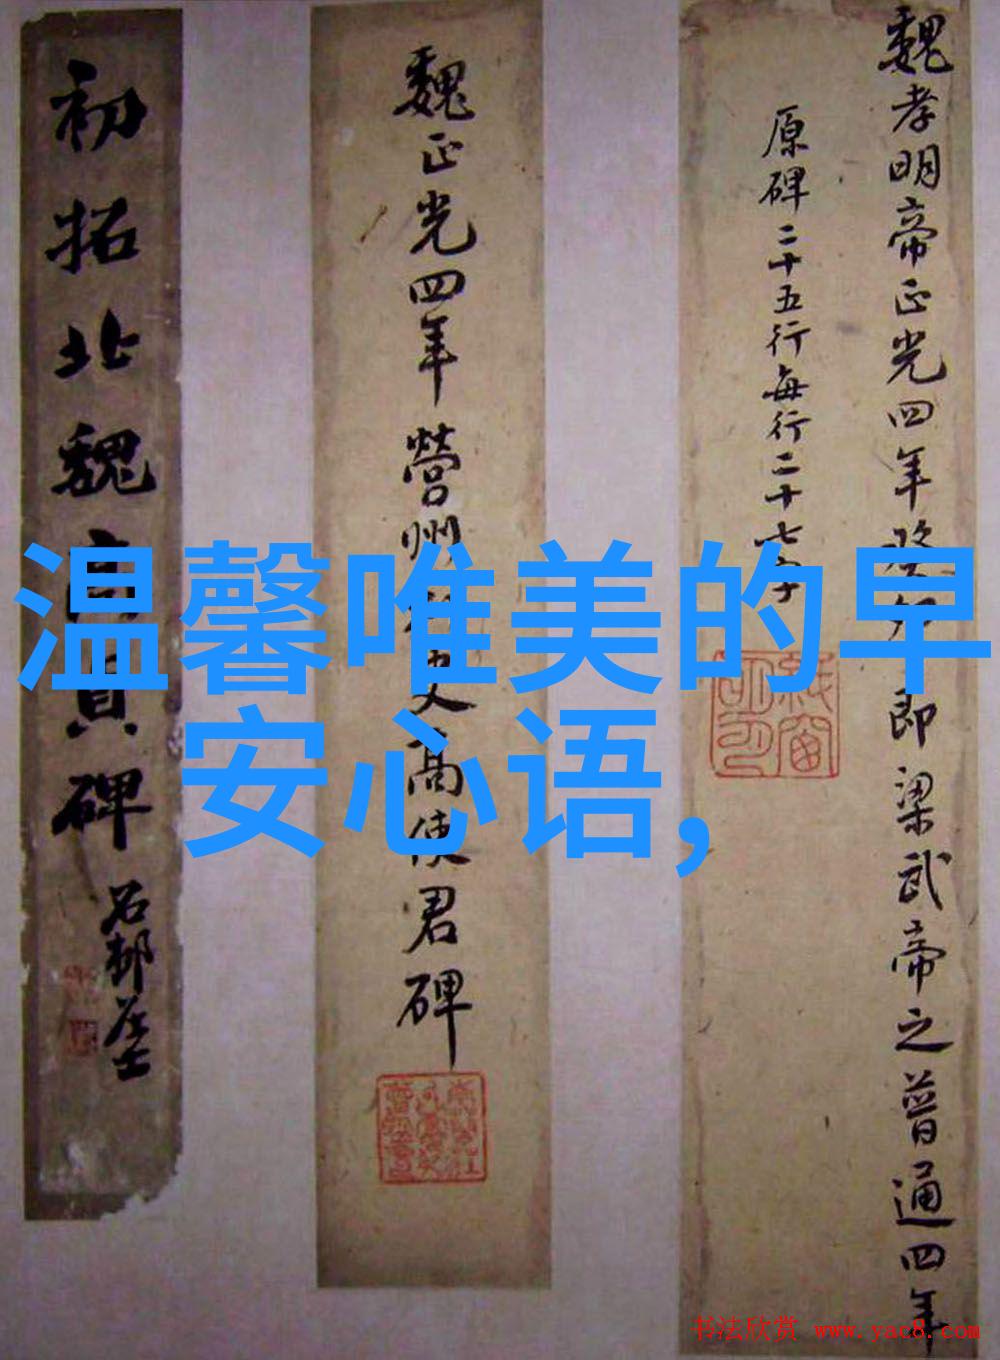 魏孝明帝正光四年癸卯即梁武帝之普通四年
原碑二十五行每行二十七字
魏正光四年營州刺史高使君碑
初拓北魏高貞碑
石邨居士
温馨唯美的早
安心语,
书法欣赏 www.yac8.com